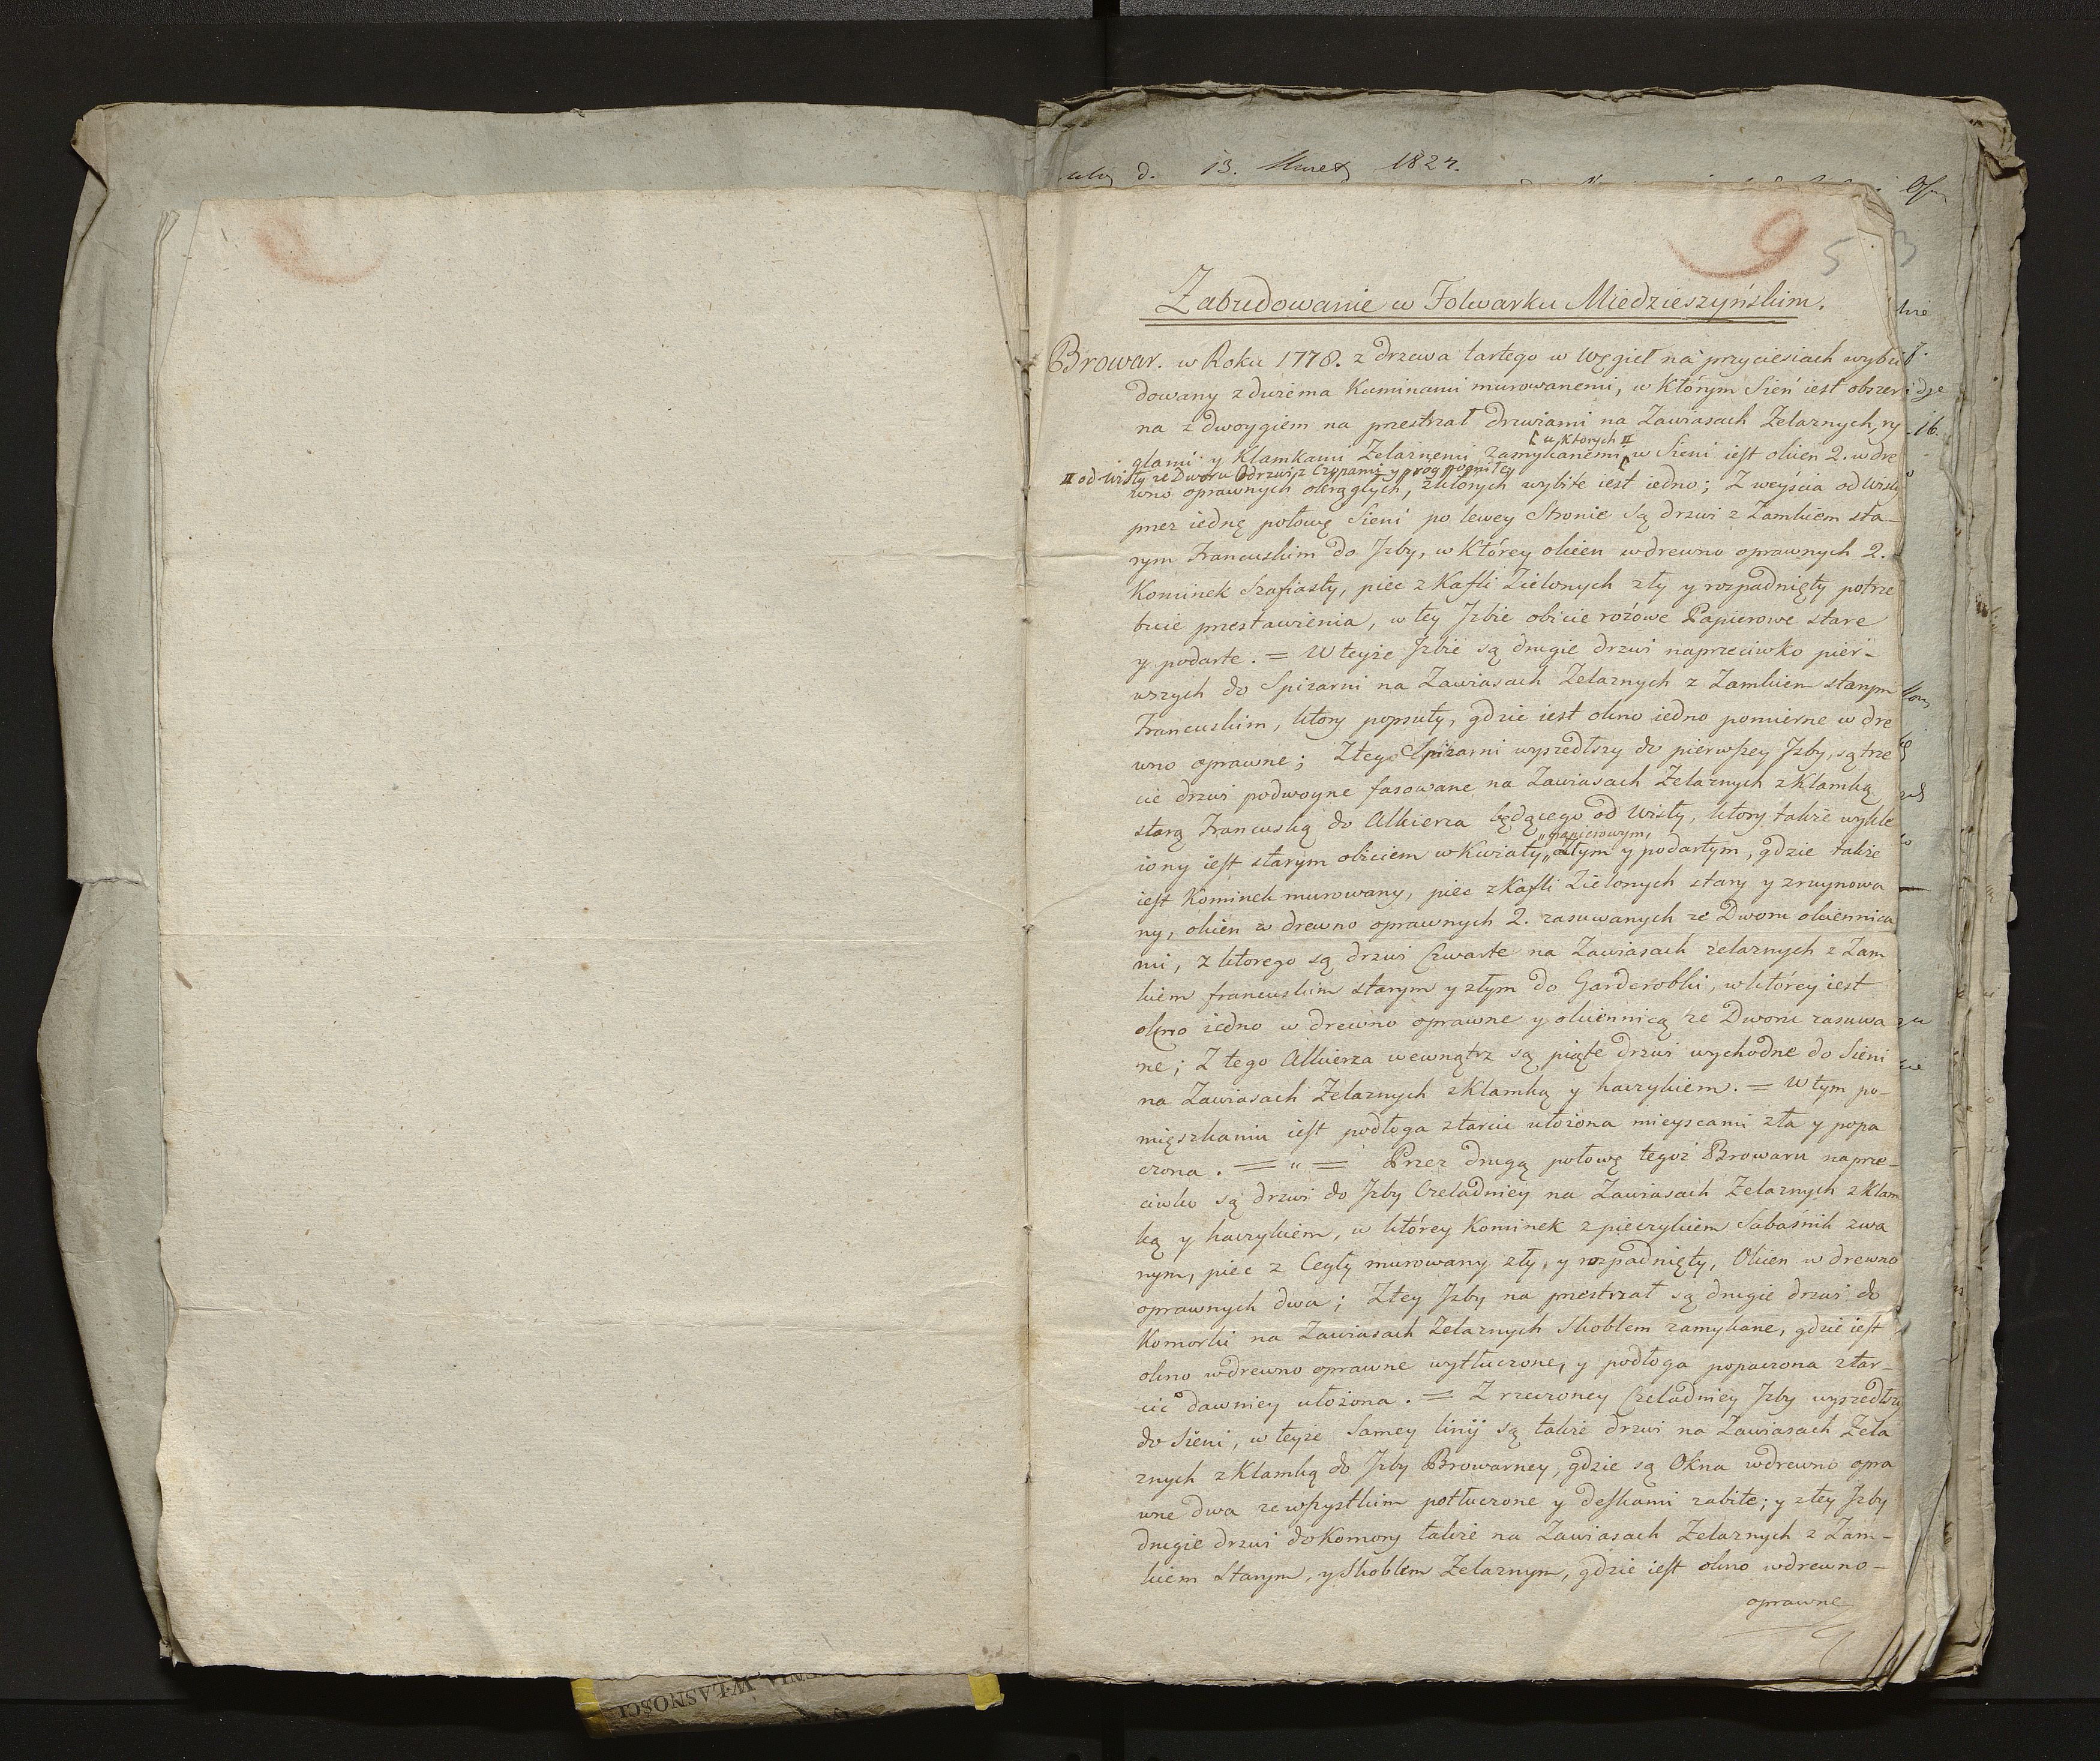 d. 13. 1827.
5 3
Zabudowanie w Folwarku Miedzieszyńskim.
Browar. w Roku 1778. z drzewa tartego w węgieł na przyciesiach wybu
dowany z dwiema Kuminami murowanemi, w którym Sień iest obszer
na z dwoygiem na przestrzał drzwiami na Zawiasach Żelaznych, ry
glami y Klamkami Żelaznemi zamykanemi, w Sieni iest okien 2. w dre
u, których II
II od Wisły ze Dworu Odrzwi z Czopami y prog pogniły
wno oprawnych okrągłych, z których wybite iest iedno; Z weyścia od Wisły
przez iednę połowę Sieni po lewey Stronie są drzwi z Zamkiem sta-
rym Francuskim do Jzby, w którey okien w drewno oprawnych 2.
Kominek Szafiasty, piec z Kafli Zielonych zły y rozpadnięty potrze
buie przestawienia, w tey Jzbie obicie rożowe Papierowe stare
y podarte. = W teyże Jzbie są drugie drzwi naprzeciwko pier-
wszych do Spiżarni na Zawiasach Żelaznych z Zamkiem starym
Francuskim, ktory popsuty, gdzie iest okno iedno pomierne w dre
wno oprawne; Z tey Spiżarni wyszedłszy do pierwszey Jzby, są trze
cie drzwi podwoyne fasowane na Zawiasach Żelaznych z Klamką
starą Francuską do Alkierza będącego od Wisły, ktory także wykle
iony iest starym obiciem w Kwiaty „papierowym, złym y podartym, gdzie także
iest Kominek murowany, piec z Kafli Zielonych stary y zruynowa
ny, okien w drewno oprawnych 2. zasuwanych ze Dworu okiennica
mi, z ktorego są drzwi Czwarte na Zawiasach żelaznych z Zam
kiem francuskim starym y złym do Garderobki, w którey iest
okno iedno w drewno oprawne y okiennicą ze Dworu zasuwa
ne; Z tego Alkierza wewnątrz są piąte drzwi wychodne do Sieni
na Zawiasach Żelaznych z Klamką y haczykiem. = W tym po-
mięszkaniu iest podłoga z tarcic ułożona mieyscami zła y popa
czona. = " = Przez drugą połowę tegoż Browaru naprze-
ciwko są drzwi do Jzby Czeladniey na Zawiasach Żelaznych z Klam
ką y haczykiem, w którey Kominek z piecykiem Sabaśnik zwa
nym, piec z Cegły murowany zły, y rozpadnięty, Okien w drewno
oprawnych dwa; Z tey Jzby na przestrzał są drugie drzwi do
Komorki na Zawiasach Żelaznych Skoblem zamykane, gdzie iest
okno w drewno oprawne wytłuczone, y podłoga popaczona z tar-
cic dawniey ułożona. = Z rzeczoney Czeladniey Jzby wyszedłszy
do Sieni, w teyże Samey linij są także drzwi na Zawiasach Żela
znych z Klamką do Jzby Browarney, gdzie są Okna w drewno opra
wne dwa ze wszystkim potłuczone y deskami zabite; y z tey Jzby
drugie drzwi do Komory także na Zawiasach Żelaznych z Zam-
kiem starym, y Skoblem Żelaznym, gdzie iest okno w drewno-
oprawne
WŁASNOŚCI